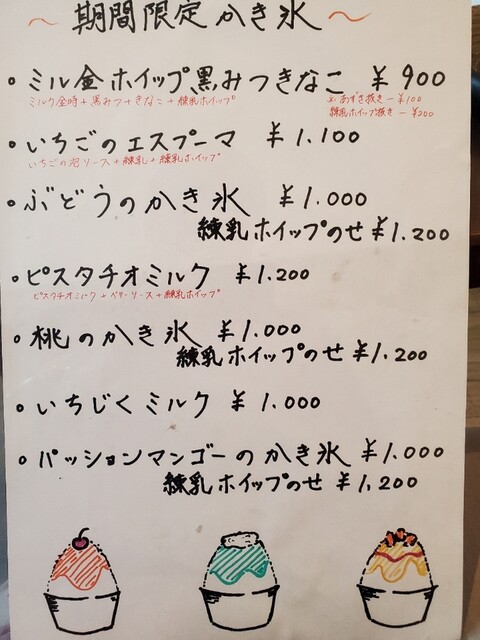 ～ 期間限定かき氷 ～
・ミル金ホイップ黒みつきなこ ¥900
ミルク金時+黒みつ+きなこ+練乳ホイップ
※あずき抜き－¥100
練乳ホイップ抜き－¥200
・いちごのエスプーマ ¥1.100
いちごの泡ソース+練乳+練乳ホイップ
・ぶどうのかき氷 ¥1.000
練乳ホイップのせ ¥1.200
・ピスタチオミルク ¥1.200
ピスタチオミルク+ベリーソース+練乳ホイップ
・桃のかき氷 ¥1.000
練乳ホイップのせ ¥1.200
・いちじくミルク ¥1.000
・パッションマンゴーのかき氷 ¥1.000
練乳ホイップのせ ¥1.200